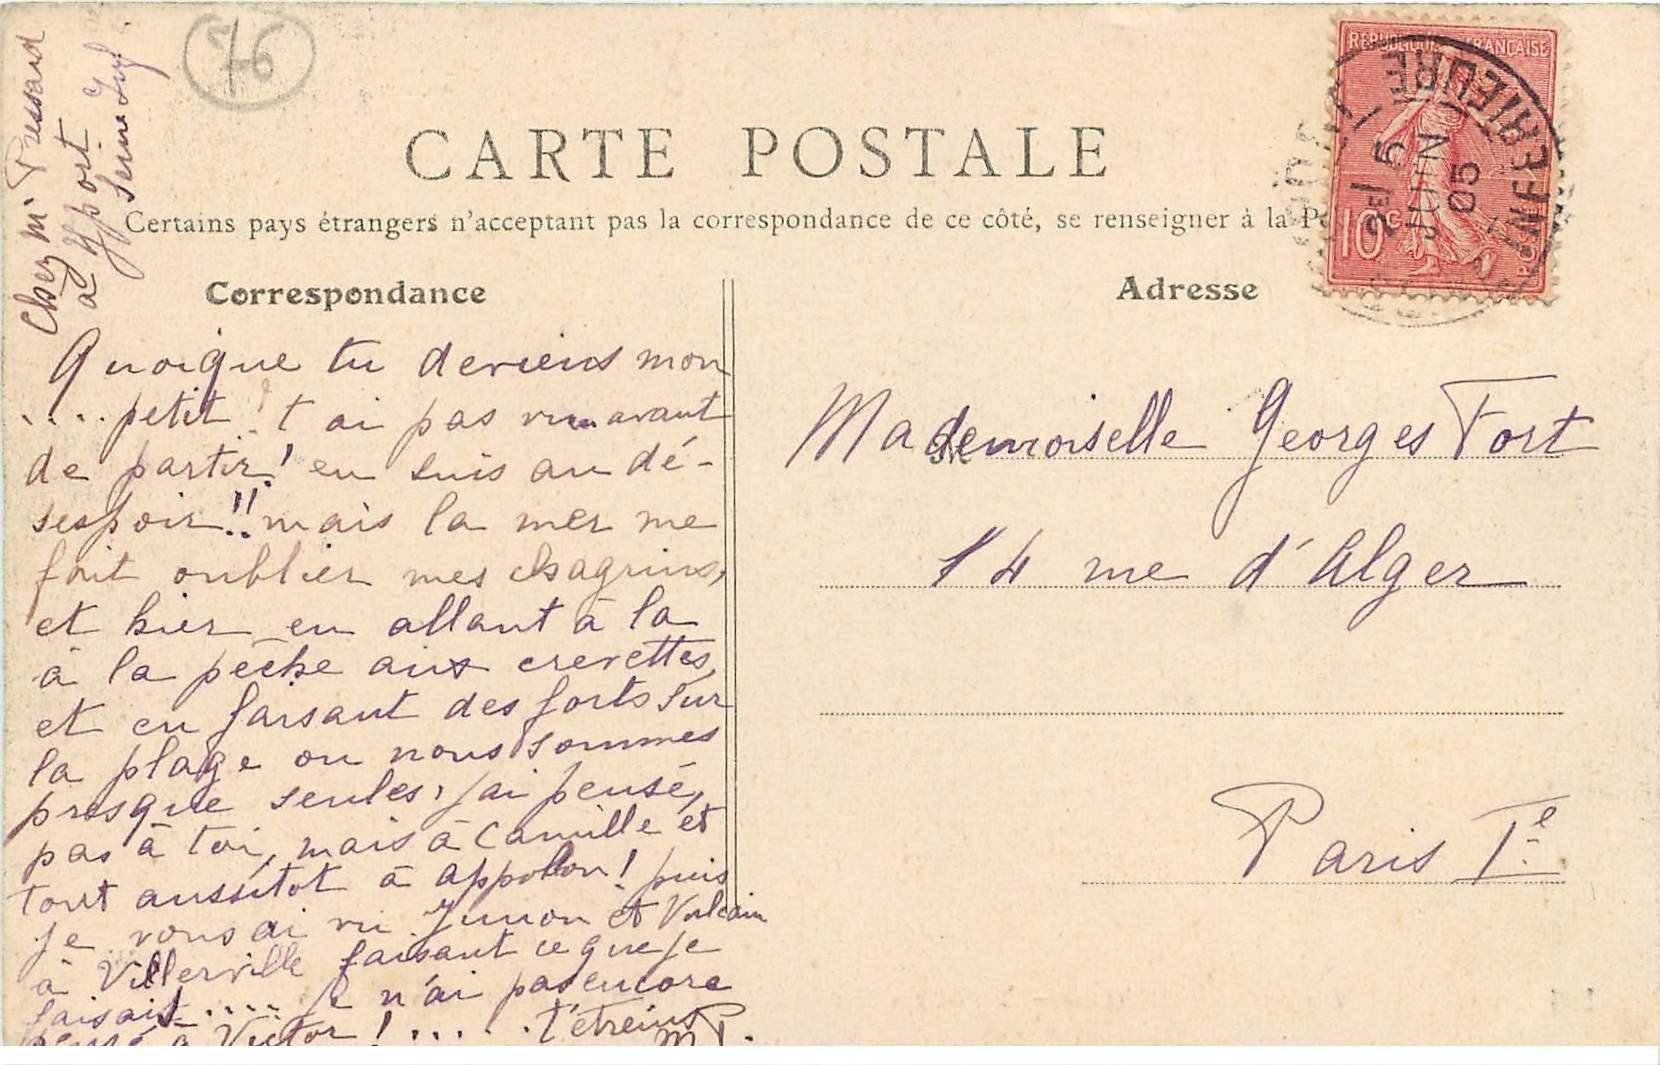 76
Chez Mr Pressard
à Yport
Seine Infre
CARTE POSTALE
Certains pays étrangers n'acceptant pas la correspondance de ce côté, se renseigner à la
REPUBLIQUE FRANÇAISE
10c
INFERIEURE
5
JUIN
05
Correspondance
Adresse
Quoique tu deviens mon
.... petit ! t ai pas vu avant
de partir ! en suis au dé-
sespoir !! mais la mer me
fait oublier mes chagrins,
et hier en allant à la
à la pêche aux crevettes,
et en faisant des forts sur
la plage ou nous sommes
presque seules, j'ai pensé,
pas à toi, mais à Camille et
tout aussitot à appollon ! puis
je vous ai vu Junon et Vulcain
à Villerville faisant ce que je
faisait .... je n'ai pas encore
pensé à Victor ! ..... t'étreins
M P.
Mademoiselle Georges Fort
14 rue d'Alger
Paris Ie